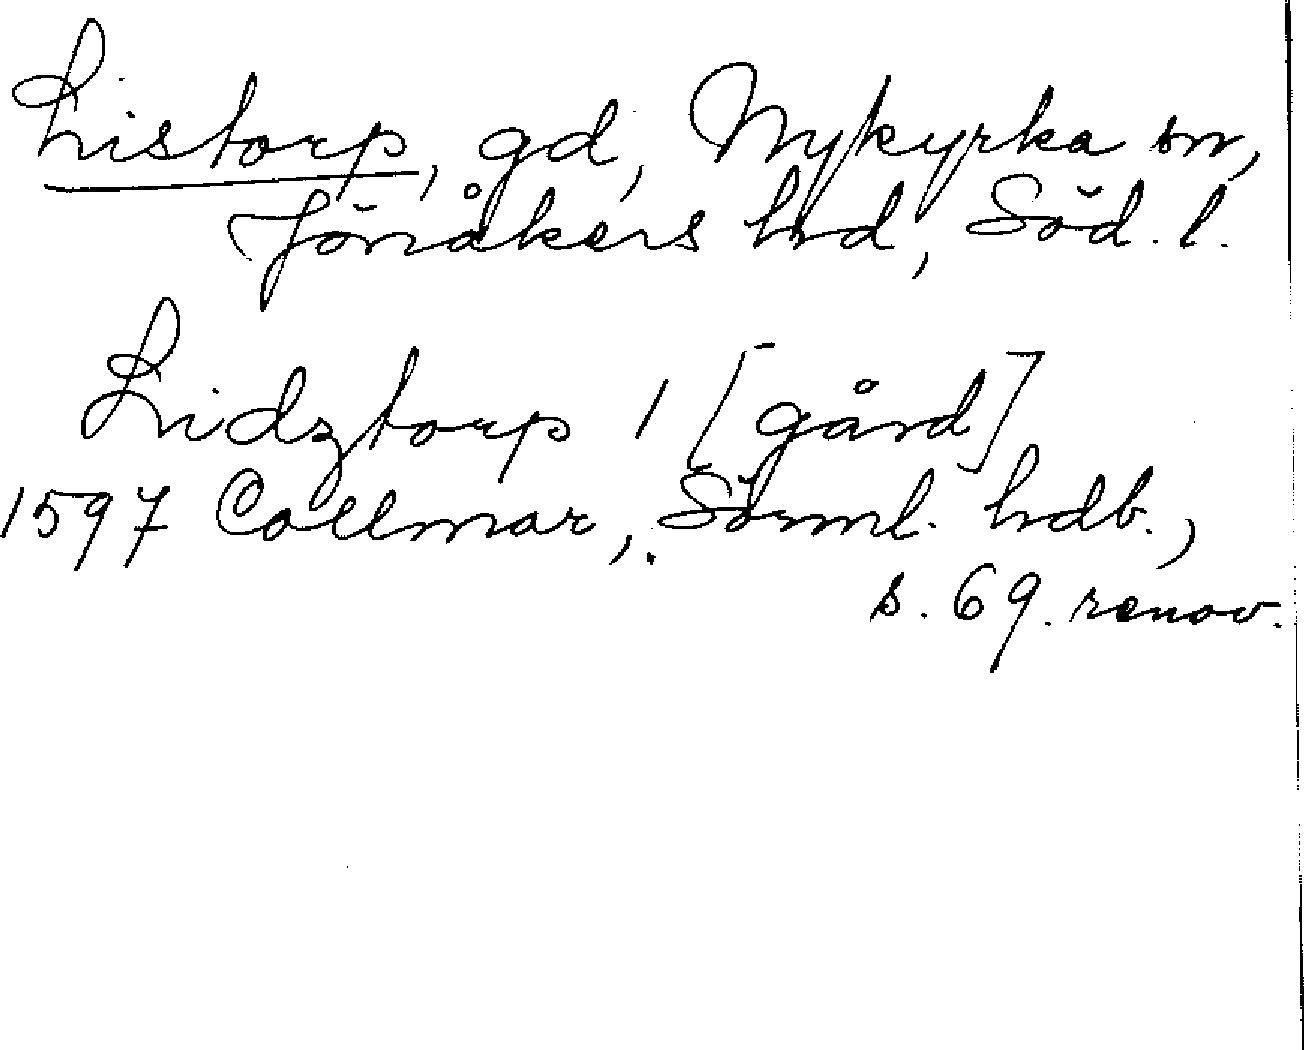 Listorp, gd, Nykyrka sn,
Jönåkers hd, Söd. l.
Lidztorp 1 [gård]
1597 Collmar, Sörml. hdb.,
s. 69. renov.